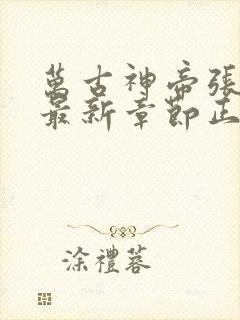 萬古神帝張
最新章節正
涂禮蓉